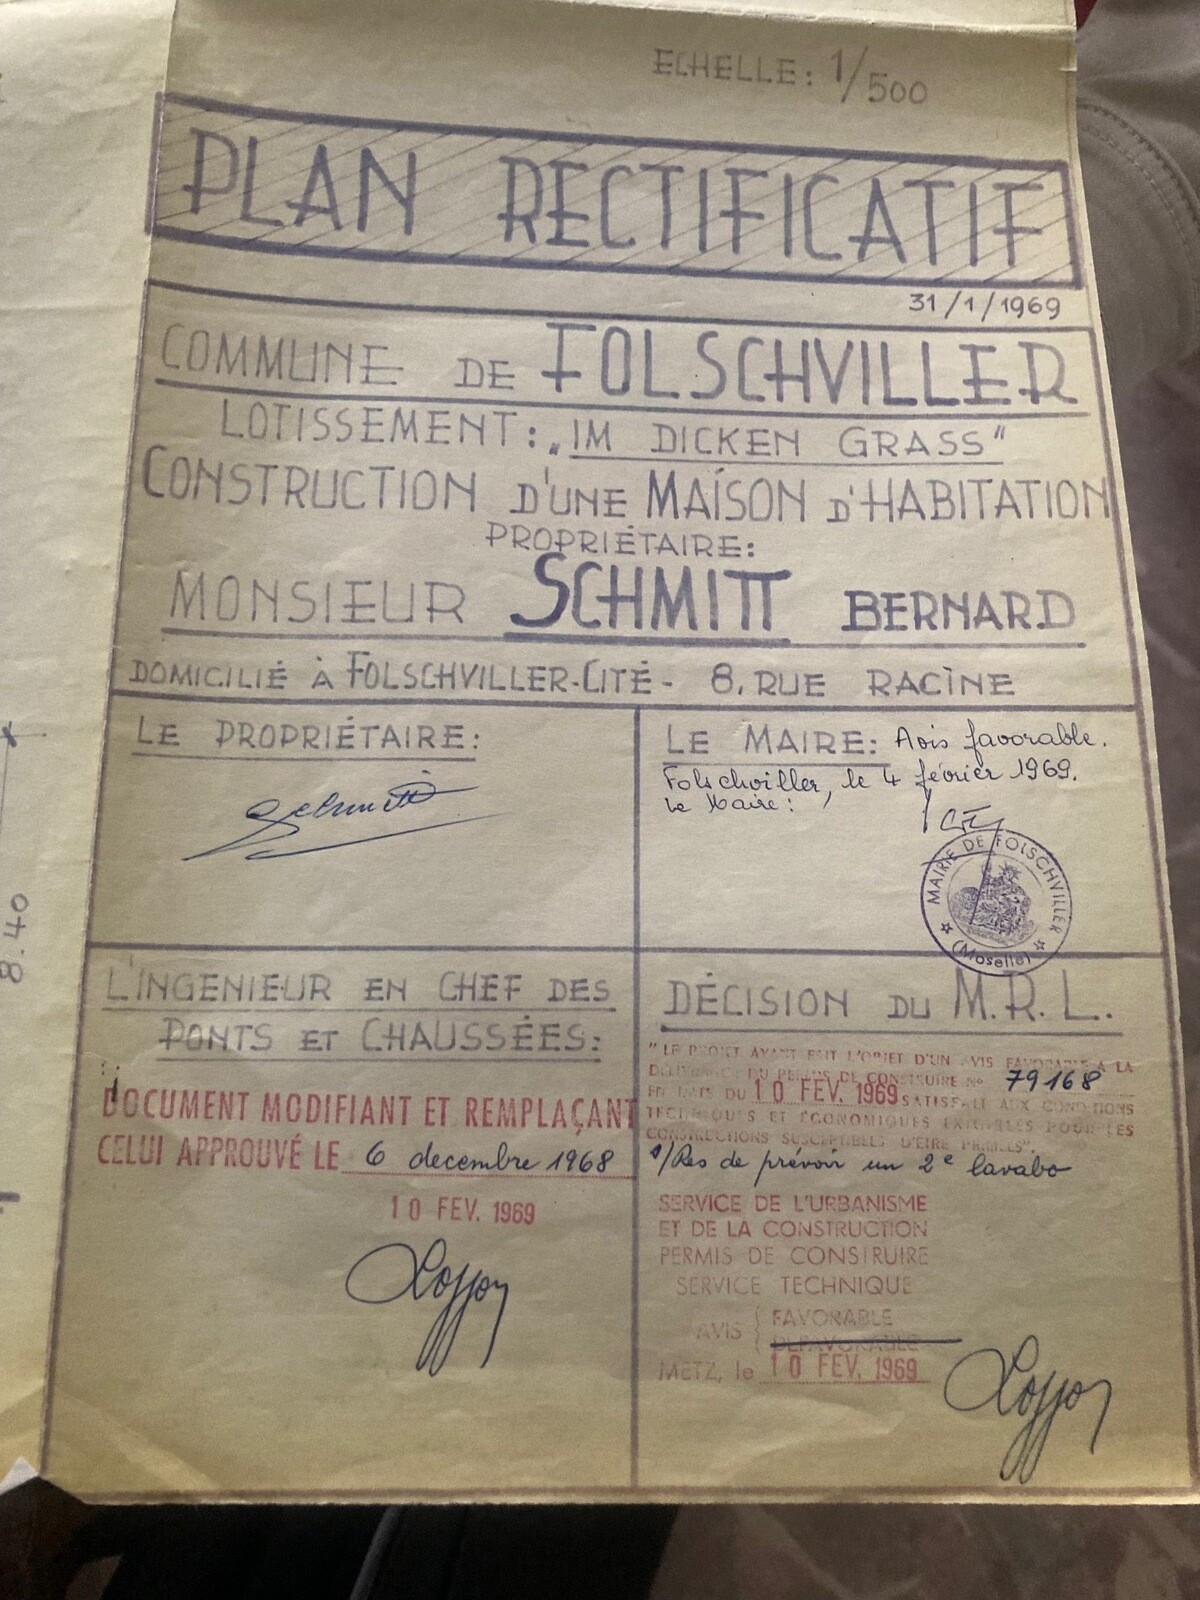 ECHELLE: 1/500
PLAN RECTIFICATIF
31/1/1969
COMMUNE DE FOLSCHVILLER
LOTISSEMENT: „IM DICKEN GRASS"
CONSTRUCTION D'UNE MAISON D'HABITATION
PROPRIÉTAIRE:
MONSIEUR SCHMITT BERNARD
DOMICILIÉ À FOLSCHVILLER-CITÉ - 8, RUE RACINE
LE PROPRIÉTAIRE:
Schmitt
LE MAIRE: Avis favorable.
Folschviller, le 4 février 1969.
Le Maire:
MAIRIE DE FOLSCHVILLER
(Moselle)
8.40
L'INGENIEUR EN CHEF DES
PONTS ET CHAUSSÉES:
DOCUMENT MODIFIANT ET REMPLAÇANT
CELUI APPROUVÉ LE 6 decembre 1968
10 FEV. 1969
DÉCISION DU M.R.L.
"LE PROJET AYANT FAIT L'OBJET D'UN AVIS FAVORABLE A LA
DELIVRANCE DU PERMIS DE CONSTRUIRE N° 79168
EN DATE DU 10 FEV. 1969 SATISFAIT AUX CONDITIONS
TECHNIQUES ET ÉCONOMIQUES EXIGIBLES POUR LES
CONSTRUCTIONS SUSCEPTIBLES D'ÊTRE PRIMÉES".
s/Res de prévoir un 2e lavabo
SERVICE DE L'URBANISME
ET DE LA CONSTRUCTION
PERMIS DE CONSTRUIRE
SERVICE TECHNIQUE
AVIS { FAVORABLE
DEFAVORABLE
METZ, le 10 FEV. 1969